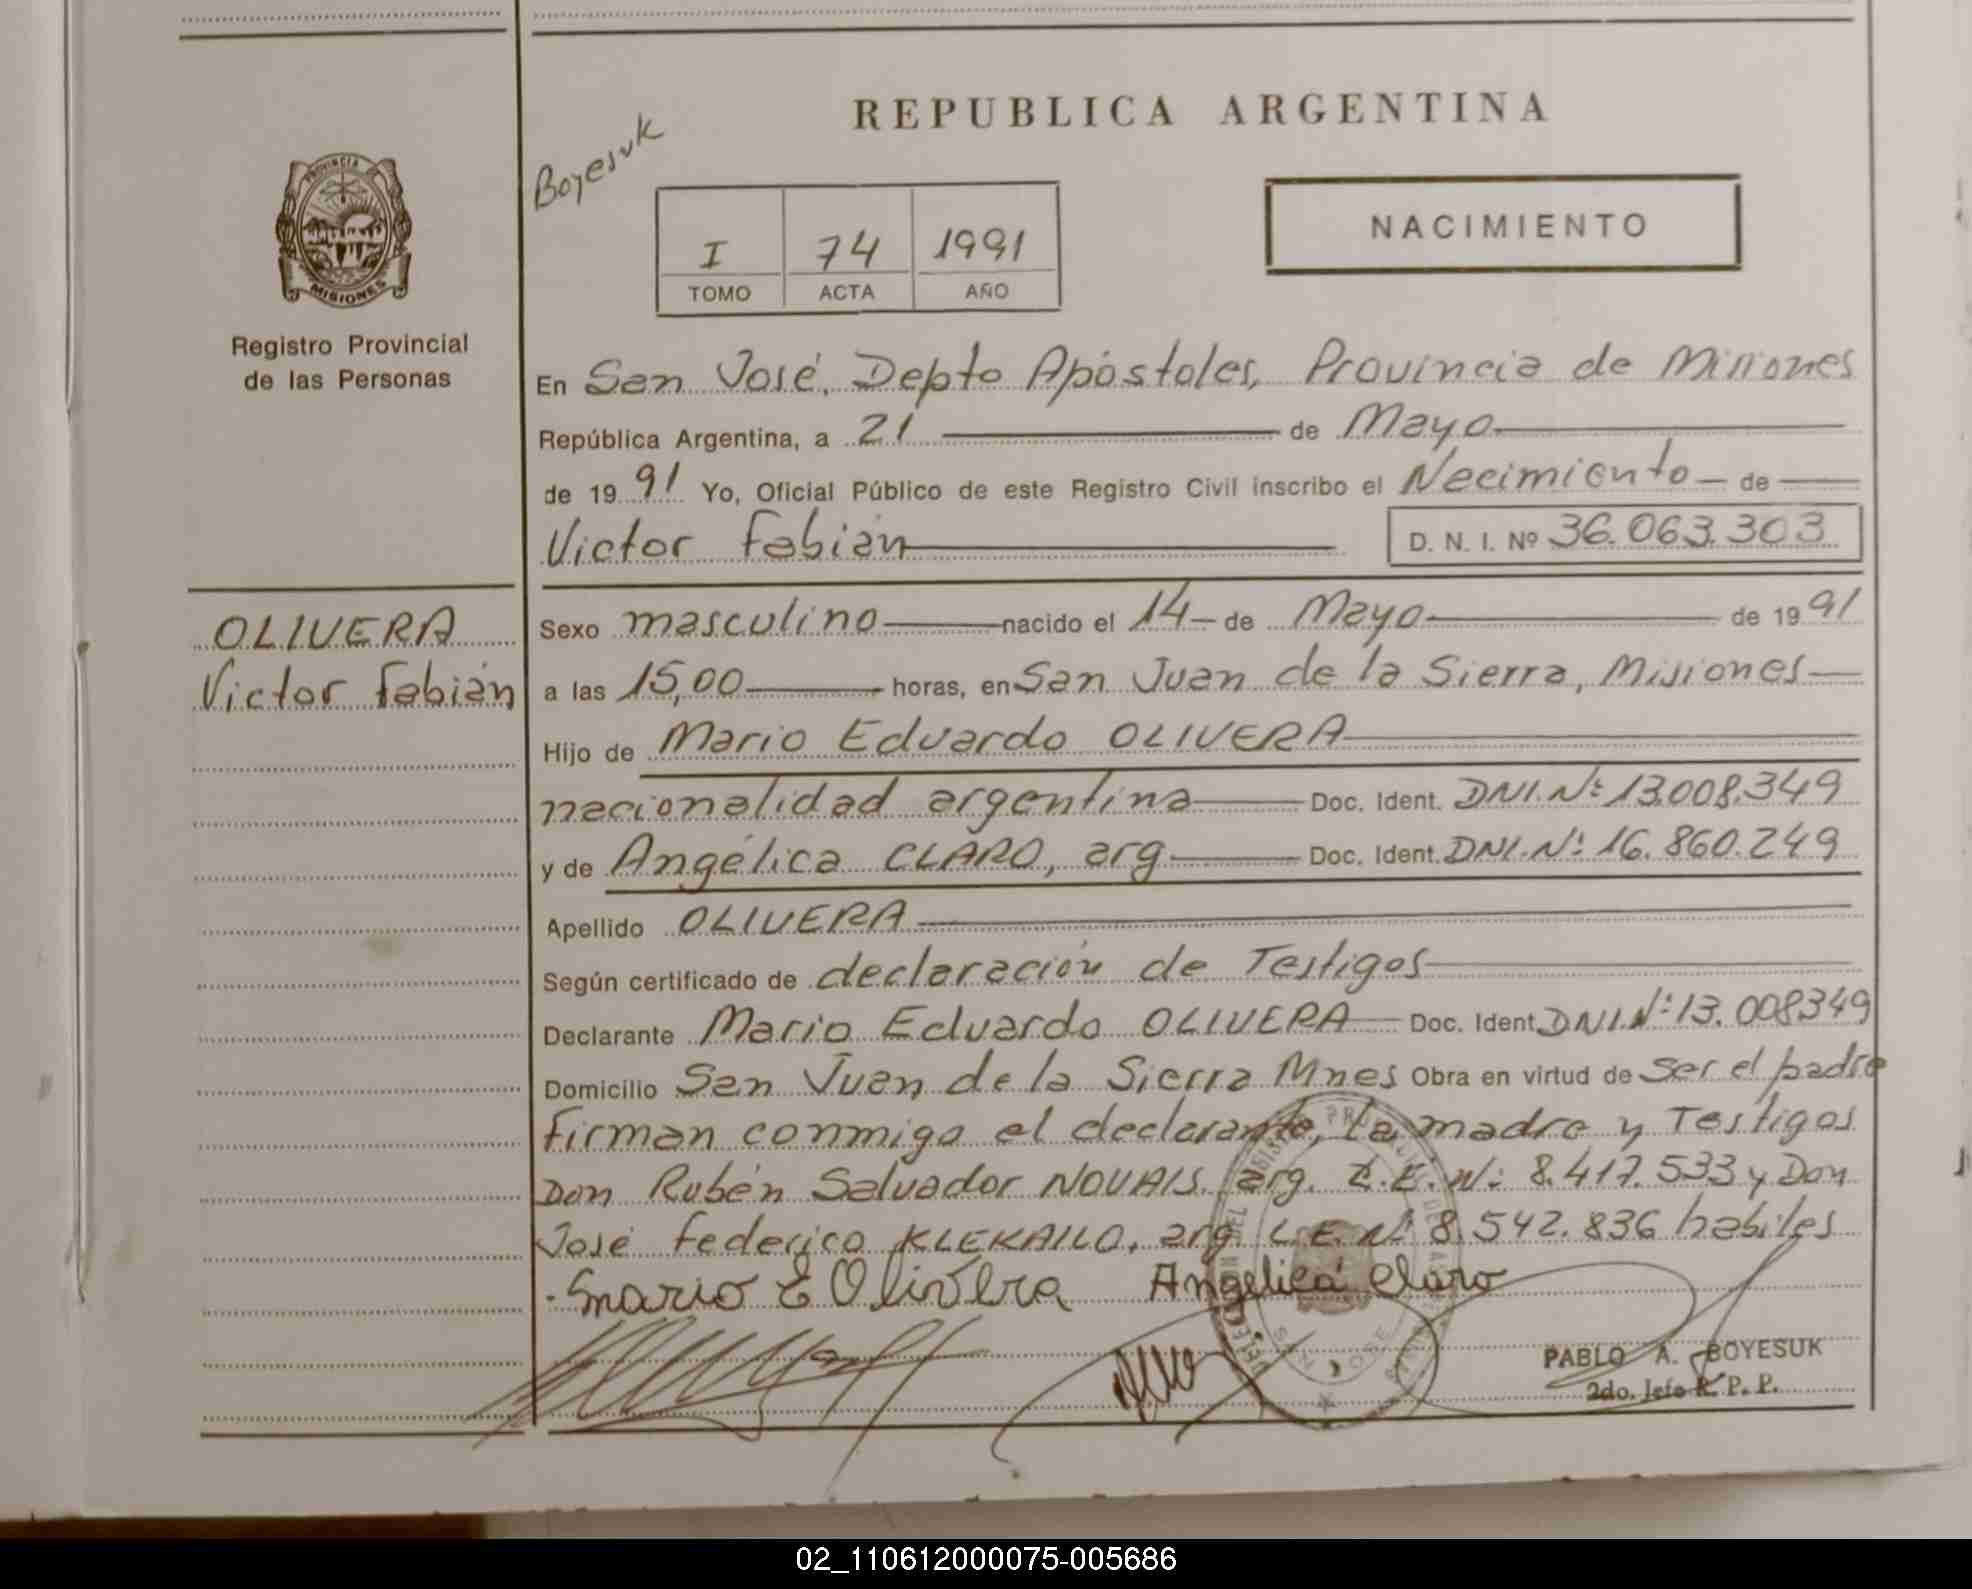 REPUBLICA ARGENTINA
Boyesuk
PROVINCIA DE
MISIONES
Registro Provincial
de las Personas
I 74 1991
TOMO ACTA AÑO
NACIMIENTO
En San José, Depto Apóstoles, Provincia de Misiones
República Argentina, a 21 de Mayo
de 1991 Yo, Oficial Público de este Registro Civil inscribo el Nacimiento de
Victor Fabián D. N. I. Nº 36.063.303
OLIVERA
Victor Fabián
Sexo masculino nacido el 14 de Mayo de 1991
a las 15,00 horas, en San Juan de la Sierra, Misiones
Hijo de Mario Eduardo OLIVERA
nacionalidad argentina Doc. Ident. DNI.Nº 13.008.349
y de Angélica CLARO, arg Doc. Ident. DNI.Nº 16.860.249
Apellido OLIVERA
Según certificado de declaración de Testigos
Declarante Mario Eduardo OLIVERA Doc. Ident. DNI.Nº 13.008349
Domicilio San Juan de la Sierra Mnes Obra en virtud de ser el padre
firman conmigo el declarante, la madre y Testigos
Don Rubén Salvador NOVAIS, arg. L.E. Nº 8.417.533 y Don
José Federico KLEKAILO, arg. L.E. Nº 8.542.836 habiles
Mario E Olivera Angelica Claro
PABLO A. BOYESUK
2do. Jefe R. P. P.
02_110612000075-005686